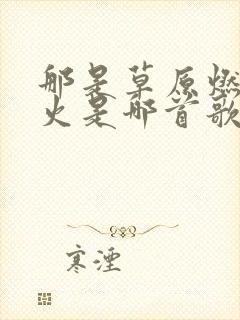 那是草原燃
火是那首歌
寒湮